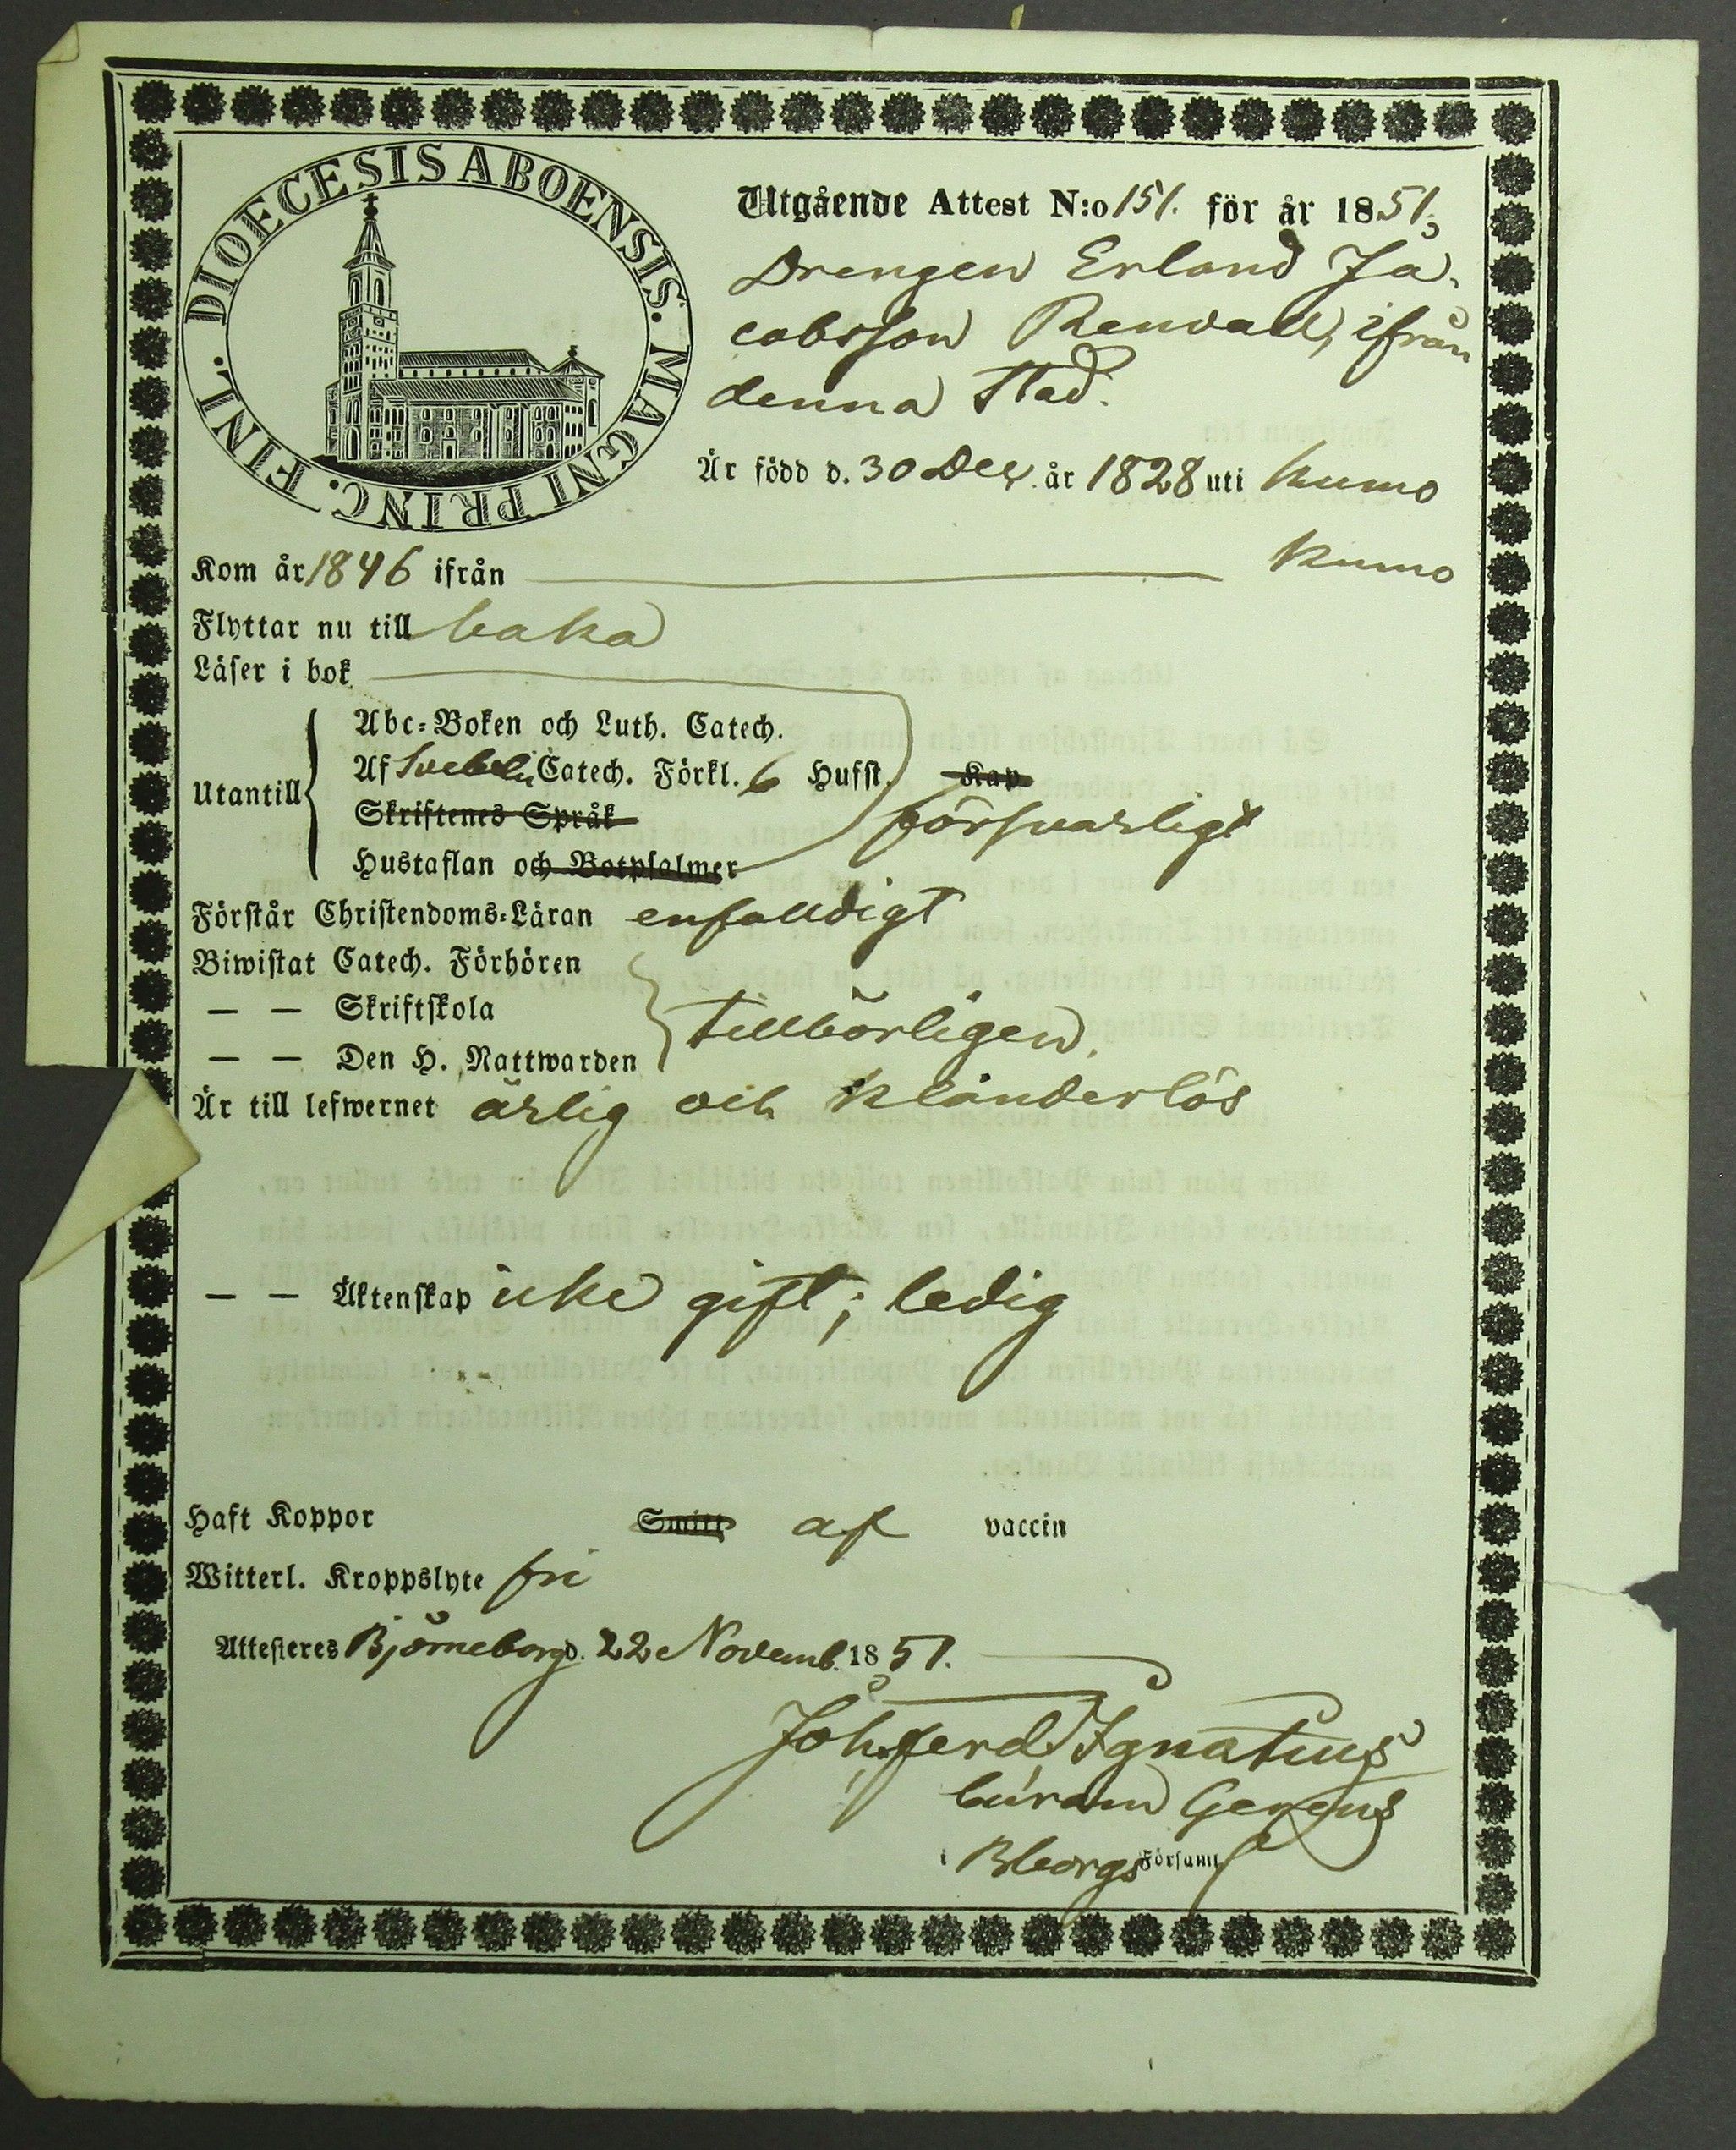 DIOECESIS ABOENSIS. MAGNI PRINC. FINL.
Utgående Attest N:o 151. för år 1851.
Drengen Erland Ja-
cobsson Renvall, ifrån
denna Stad.
Är född d. 30 Dec. år 1828 uti Kumo
Kom år 1846 ifrån Kumo
Flyttar nu till baka
Läser i bok
Utantill
Abc-Boken och Luth. Catech.
Af Svebelii Catech. Förkl. 6 Hufst. Kap
Skriftenes Språk
försvarligt
Hustaflan och Botpsalmer
Förstår Christendoms-Läran enfalldigt
Biwistat Catech. Förhören
— — Skriftskola
tillbörligen.
— — Den H. Nattwarden
Är till lefwernet ärlig och klanderlös
— — Äktenskap icke gift; ledig
Haft Koppor Smitt af vaccin
Witterl. Kroppslyte fri
Attesteras Björneborg d. 22 Novemb. 1851.
Joh. Ferd. Ignatius
Curam Gerens
i Bborgs Församl